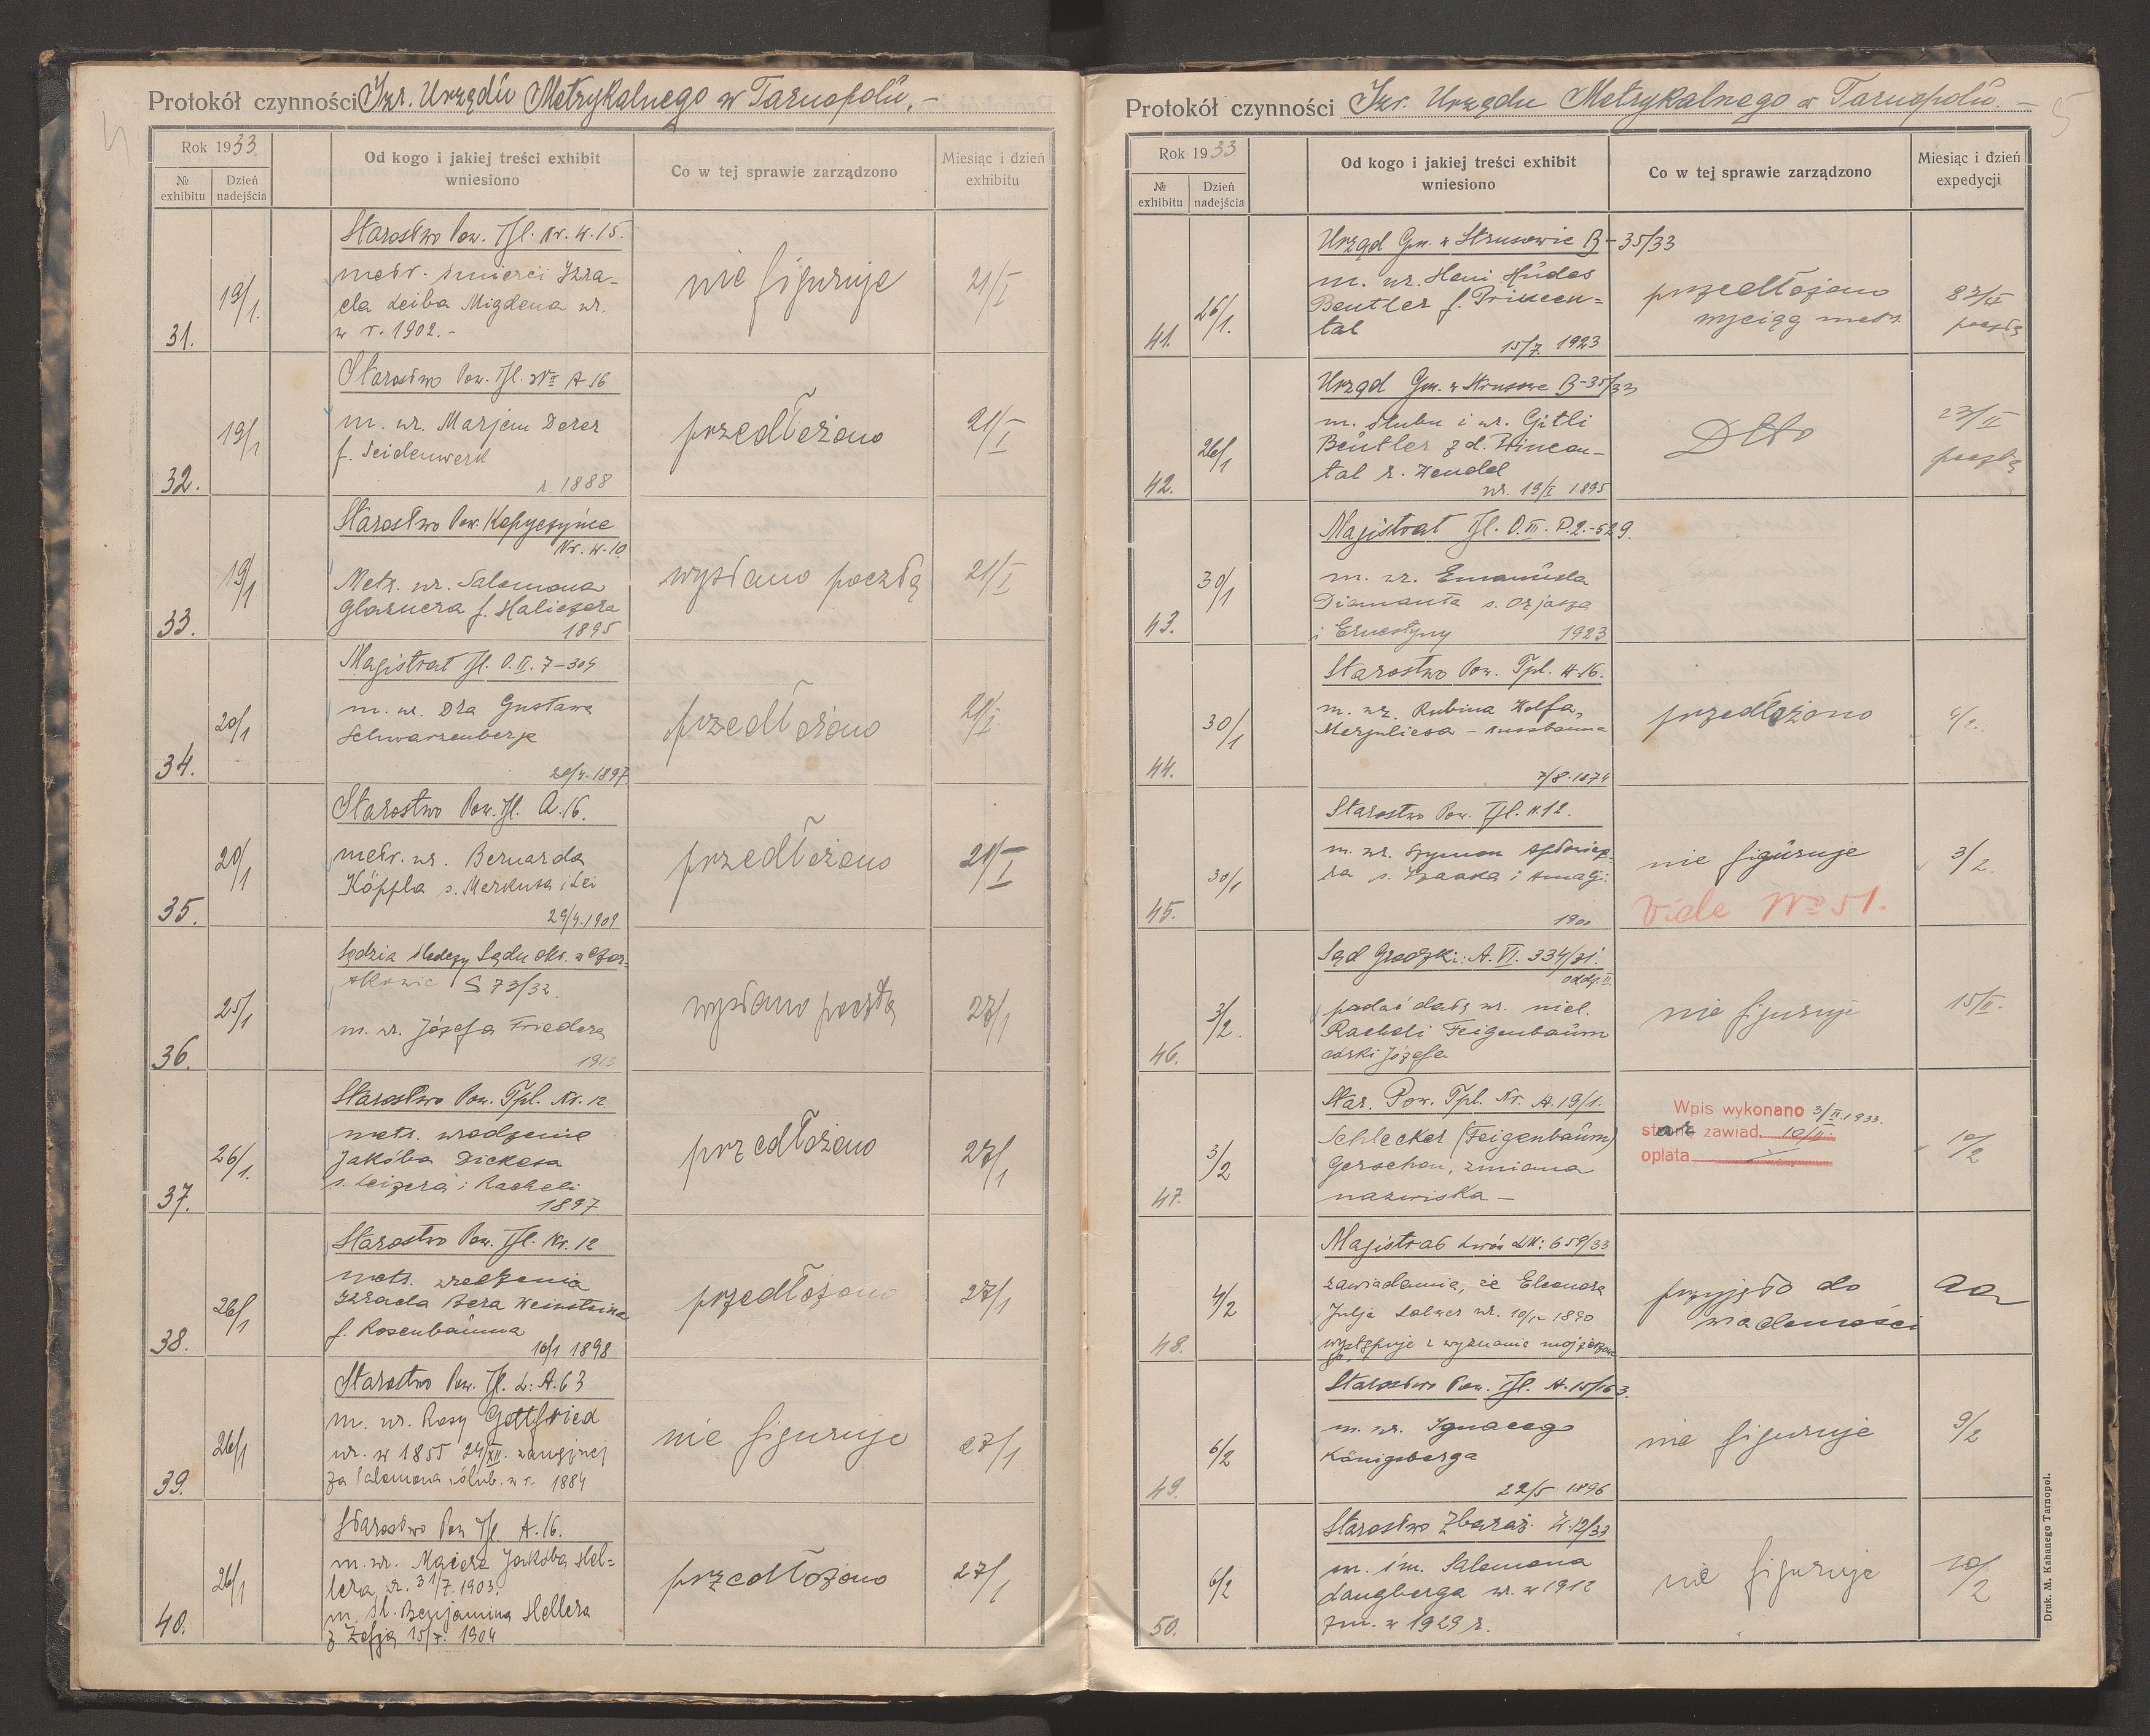 4
Protokół czynności Izr. Urzędu Metrykalnego w Tarnopolu.-
Rok 1933.
№ exhibitu
Dzień nadejścia
Od kogo i jakiej treści exhibit wniesiono
Co w tej sprawie zarządzono
Miesiąc i dzień exhibitu
31.
19/1.
Starostwo Pow. Tpl. Nr. W.15.
metr. śmierci Izra-
ela Leiba Migdena ur.
w r. 1902.-
nie figuruje
21/I
32.
19/1
Starostwo Pow. Tpl. № A 16
m. ur. Marjem Derer
f. Seidenwerk
r. 1888
przedłożono
21/I
33.
19/1
Starostwo Pow. Kopyczyńce
Nr. W.10.
Metr. ur. Salomona
Glasnera f. Haliczera
1895
wysłano pocztą
21/I
34.
20/1
Magistrat Tpl. O.II. 7-304
m. ur. Dra Gustawa
Schwarzenberga
1897
przedłożono
21/I
35.
20/1
Starostwo Pow. Tpl. A.16.
metr. ur. Bernarda
Köppla s. Merkusa i Lei
29/4.1909
przedłożono
21/I
36.
25/1
Sędzia śledczy Sądu okr. w Czort-
kowie S 73/32.
m. ur. Józefa Friedera
1913
wysłano pocztą
27/1
37.
26/1.
Starostwo Pow. Tpl. Nr. 12.
metr. urodzenia
Jakóba Dickesa
s. Leizera i Racheli
1897
przedłożono
27/1
38.
26/1
Starostwo Pow. Tpl. Nr. 12
metr. urodzenia
Izraela Bera Weinsteina
f. Rosenbauma
16/1 1898
przedłożono
27/1
39.
26/1
Starostwo Pow. Tpl. L: A.63
m. ur. Rosy Gottfried
ur. w 1855 24/XII. zamężnej
za Salamona ślub. w r. 1884
nie figuruje
27/1
40.
26/1
Starostwo Pow Tpl A.16.
m. ur. Majera Jakóba Hel-
lera r. 31/7.1903.
m. śl. Benjamina Hellera
z Zofją 15/7. 1904
przedłożono
27/1
5
Protokół czynności Izr. Urzędu Metrykalnego w Tarnopolu.-
Rok 1933.
№ exhibitu
Dzień nadejścia
Od kogo i jakiej treści exhibit wniesiono
Co w tej sprawie zarządzono
Miesiąc i dzień expedycji
41.
26/1.
Urząd Gm. w Strusowie B-35/33
m. ur. Heni Hudes
Beutler f. Princen-
tal
15/7. 1923
przedłożono
wyciąg metr.
pocztą
42.
26/1
Urząd Gm. w Strusowie B-35/33
m. ślubu i ur. Gitli
Beutler z d. Princen-
tal r. Hendel
ur. 19/I 1895
Dtto
23/II
pocztą
43.
30/1
Magistrat Tpl. O.III. P.2.-529.
m. ur. Emanuela
Diamanta s. Ozjasza
i Ernestyny 1923
44.
30/1
Starostwo Pow. Tpl. A.16.
m. ur. Rubina Wolfa,
Marguliesa - Nussbauma
7/8.1874
przedłożono
45.
30/1
Starostwo Pow. Tpl. A.12.
m. ur. Szymon
ra s. Izaaka i Amalji.
1900
nie figuruje
Vide № 51.
3/2.
46.
3/2.
Sąd Grodzki: A. VI. 334/31.
oddz. II.
podać datę ur. niel.
Racheli Feigenbaum
córki Józefa
nie figuruje
15/II.
47.
3/2
Star. Pow. Tpl. Nr. A.19/1.
Schlecker (Feigenbaum)
Gerschon, zmiana
nazwiska -
Wpis wykonano 3/II.1933.
zawiad. 10/II.
opłata
10/2
48.
4/2
Magistrat Lwów LW: 659/33
zawiadamia, że Eleonora
Julja ur. 1890
występuje z wyznania mojżeszowe
go.
przyjęto do
wiadomości
aa
49.
6/2
Starostwo Pow. Tpl. A.15/163.
m. ur. Ignacego
Königsberga
22/5 1896
nie figuruje
9/2
50.
6/2
Starostwo Zbaraż. W.12/33
m. śm. Salamona
Langberga ur. w 1912
zm. w 1929 r.
nie figuruje
10/2
Druk. M. Kahanego Tarnopol.